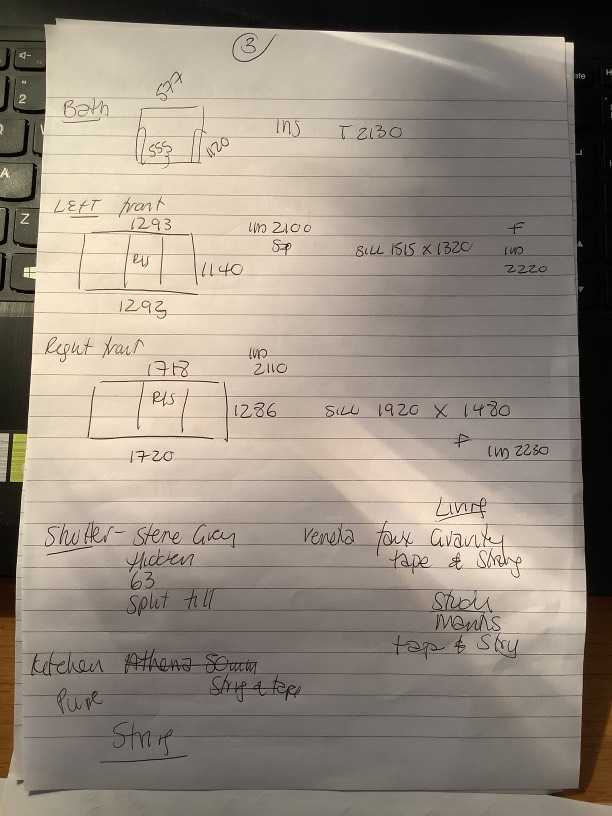 3
Bath
555
1120
Ins T 2130
LEFT front
1293
R/S
1140
1293
Ins 2100
Sill 1515 x 1320
F
Ins
2220
Right front
1718
R/S
1286
1720
Ins
2110
Sill 1920 x 1480
F
Ins 2230
Shutter - Stone Grey
Hidden
63
Split till
Living
faux Gravity
tape & String
Studi
tape & Stry
Kitchen Athena 50mm
Strig & tape
Pure
String